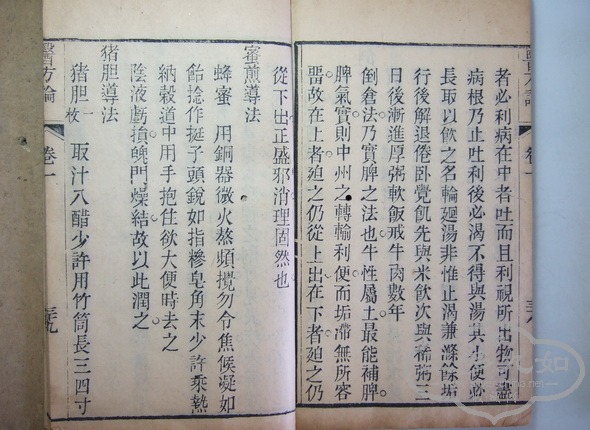 者必利病在中者吐而且利視所出物可盡
病根乃止吐利後必渴不得與湯其小便必
長取以飲之名輪廻湯非惟止渴兼滌餘垢
行後觧退倦卧覺飢先與米飲次與稀粥三
日後漸進厚粥軟飯戒牛肉數年
倒倉法乃實脾之法也牛性屬土最能補脾
脾氣實則中州之轉輸利便而垢滯無所容
畱故在上者廹之仍從上出在下者廹之仍
醫方論 卷一 三九
從下出正盛邪消理固然也
蜜煎導法
蜂蜜 用銅器微火熬頻攪勿令焦候凝如
飴捻作挺子頭銳如指糝皂角末少許乘熱
納穀道中用手抱住欲大便時去之
陰液虧損魄門燥結故以此潤之
猪胆導法
猪胆一枚 取汁入醋少許用竹筒長三四寸